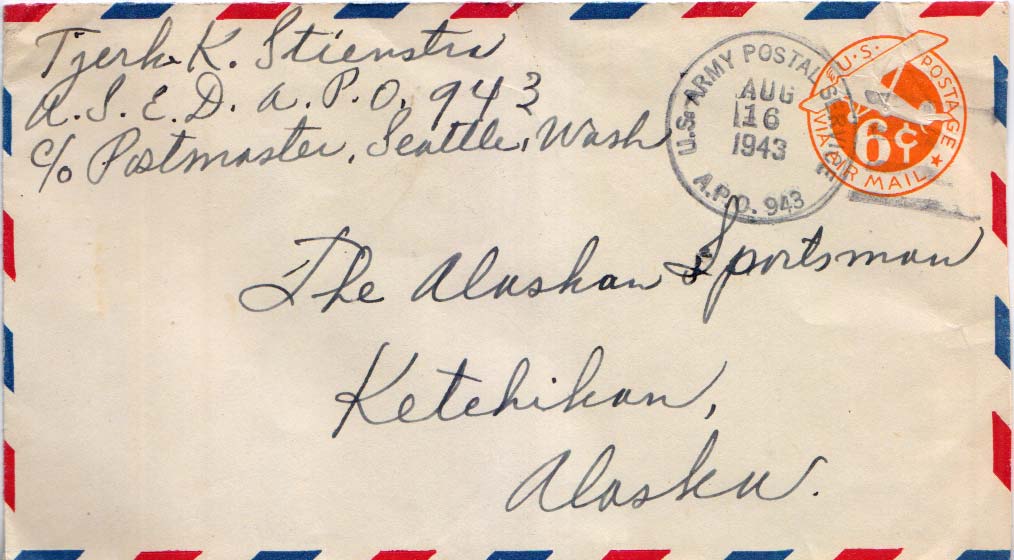 Tjerk K. Stienstra
A.S.E.D. A.P.O. 943
c/o Postmaster, Seattle, Wash
U.S. ARMY POSTAL SERVICE
AUG
16
1943
A.P.O. 943
U.S. POSTAGE
6¢
VIA AIR MAIL
The Alaskan Sportsman
Ketchikan,
Alaska.